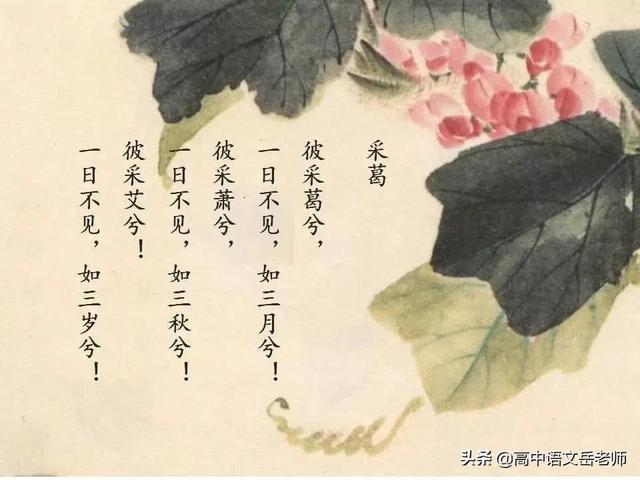 采葛
彼采葛兮，
一日不见，如三月兮！
彼采萧兮，
一日不见，如三秋兮！
彼采艾兮！
一日不见，如三岁兮！
头条 @高中语文岳老师